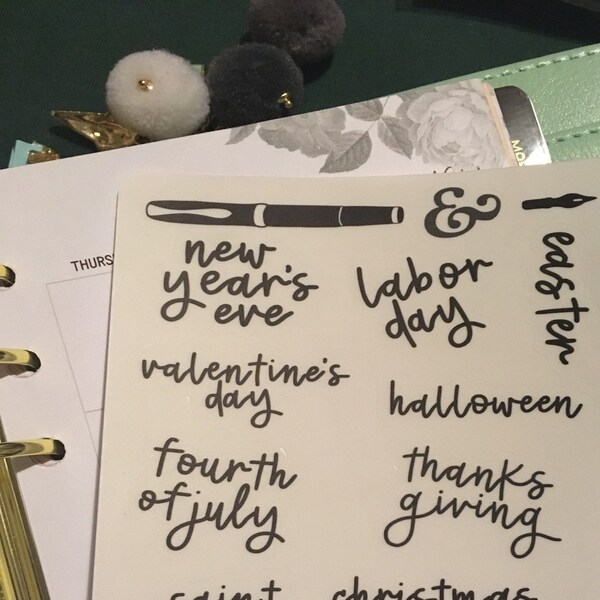 THURS
&
new
year's
eve
labor
day
easter
valentine's
day
halloween
fourth
of july
thanks
giving
saint
christmas